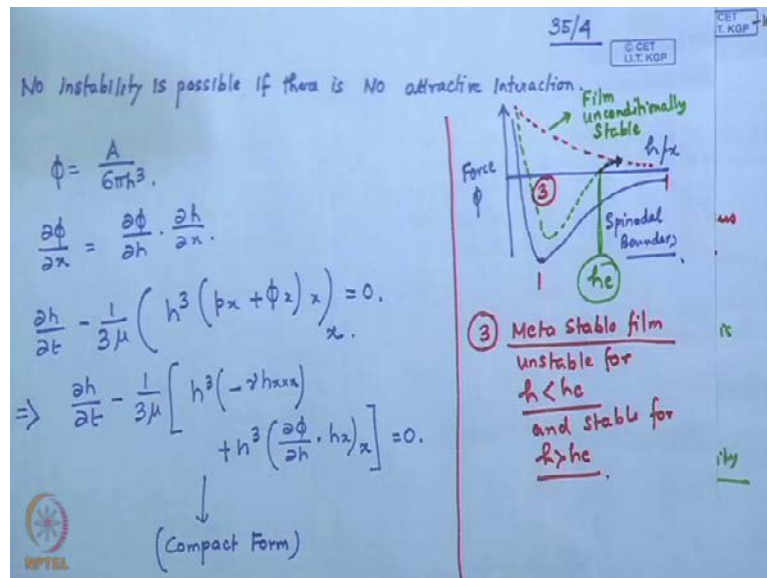 35/4
© CET
I.I.T. KGP
CET
T. KGP
No Instability is possible if there is No attractive Interaction.
ϕ = A / 6πh³.
∂ϕ/∂x = ∂ϕ/∂h · ∂h/∂x.
∂h/∂t - 1/3μ ( h³ (px + ϕx) x )x = 0.
⇒ ∂h/∂t - 1/3μ [ h³ (-γhxxx)
+ h³ ( ∂ϕ/∂h · hx )x ] = 0.
↓
(Compact Form)
Film
unconditionally
Stable
h/x
Force
ϕ
3
1
Spinodal
Boundary
1
hc
3 Meta Stable film
unstable for
h < hc
and stable for
h > hc.
is
ity
NPTEL